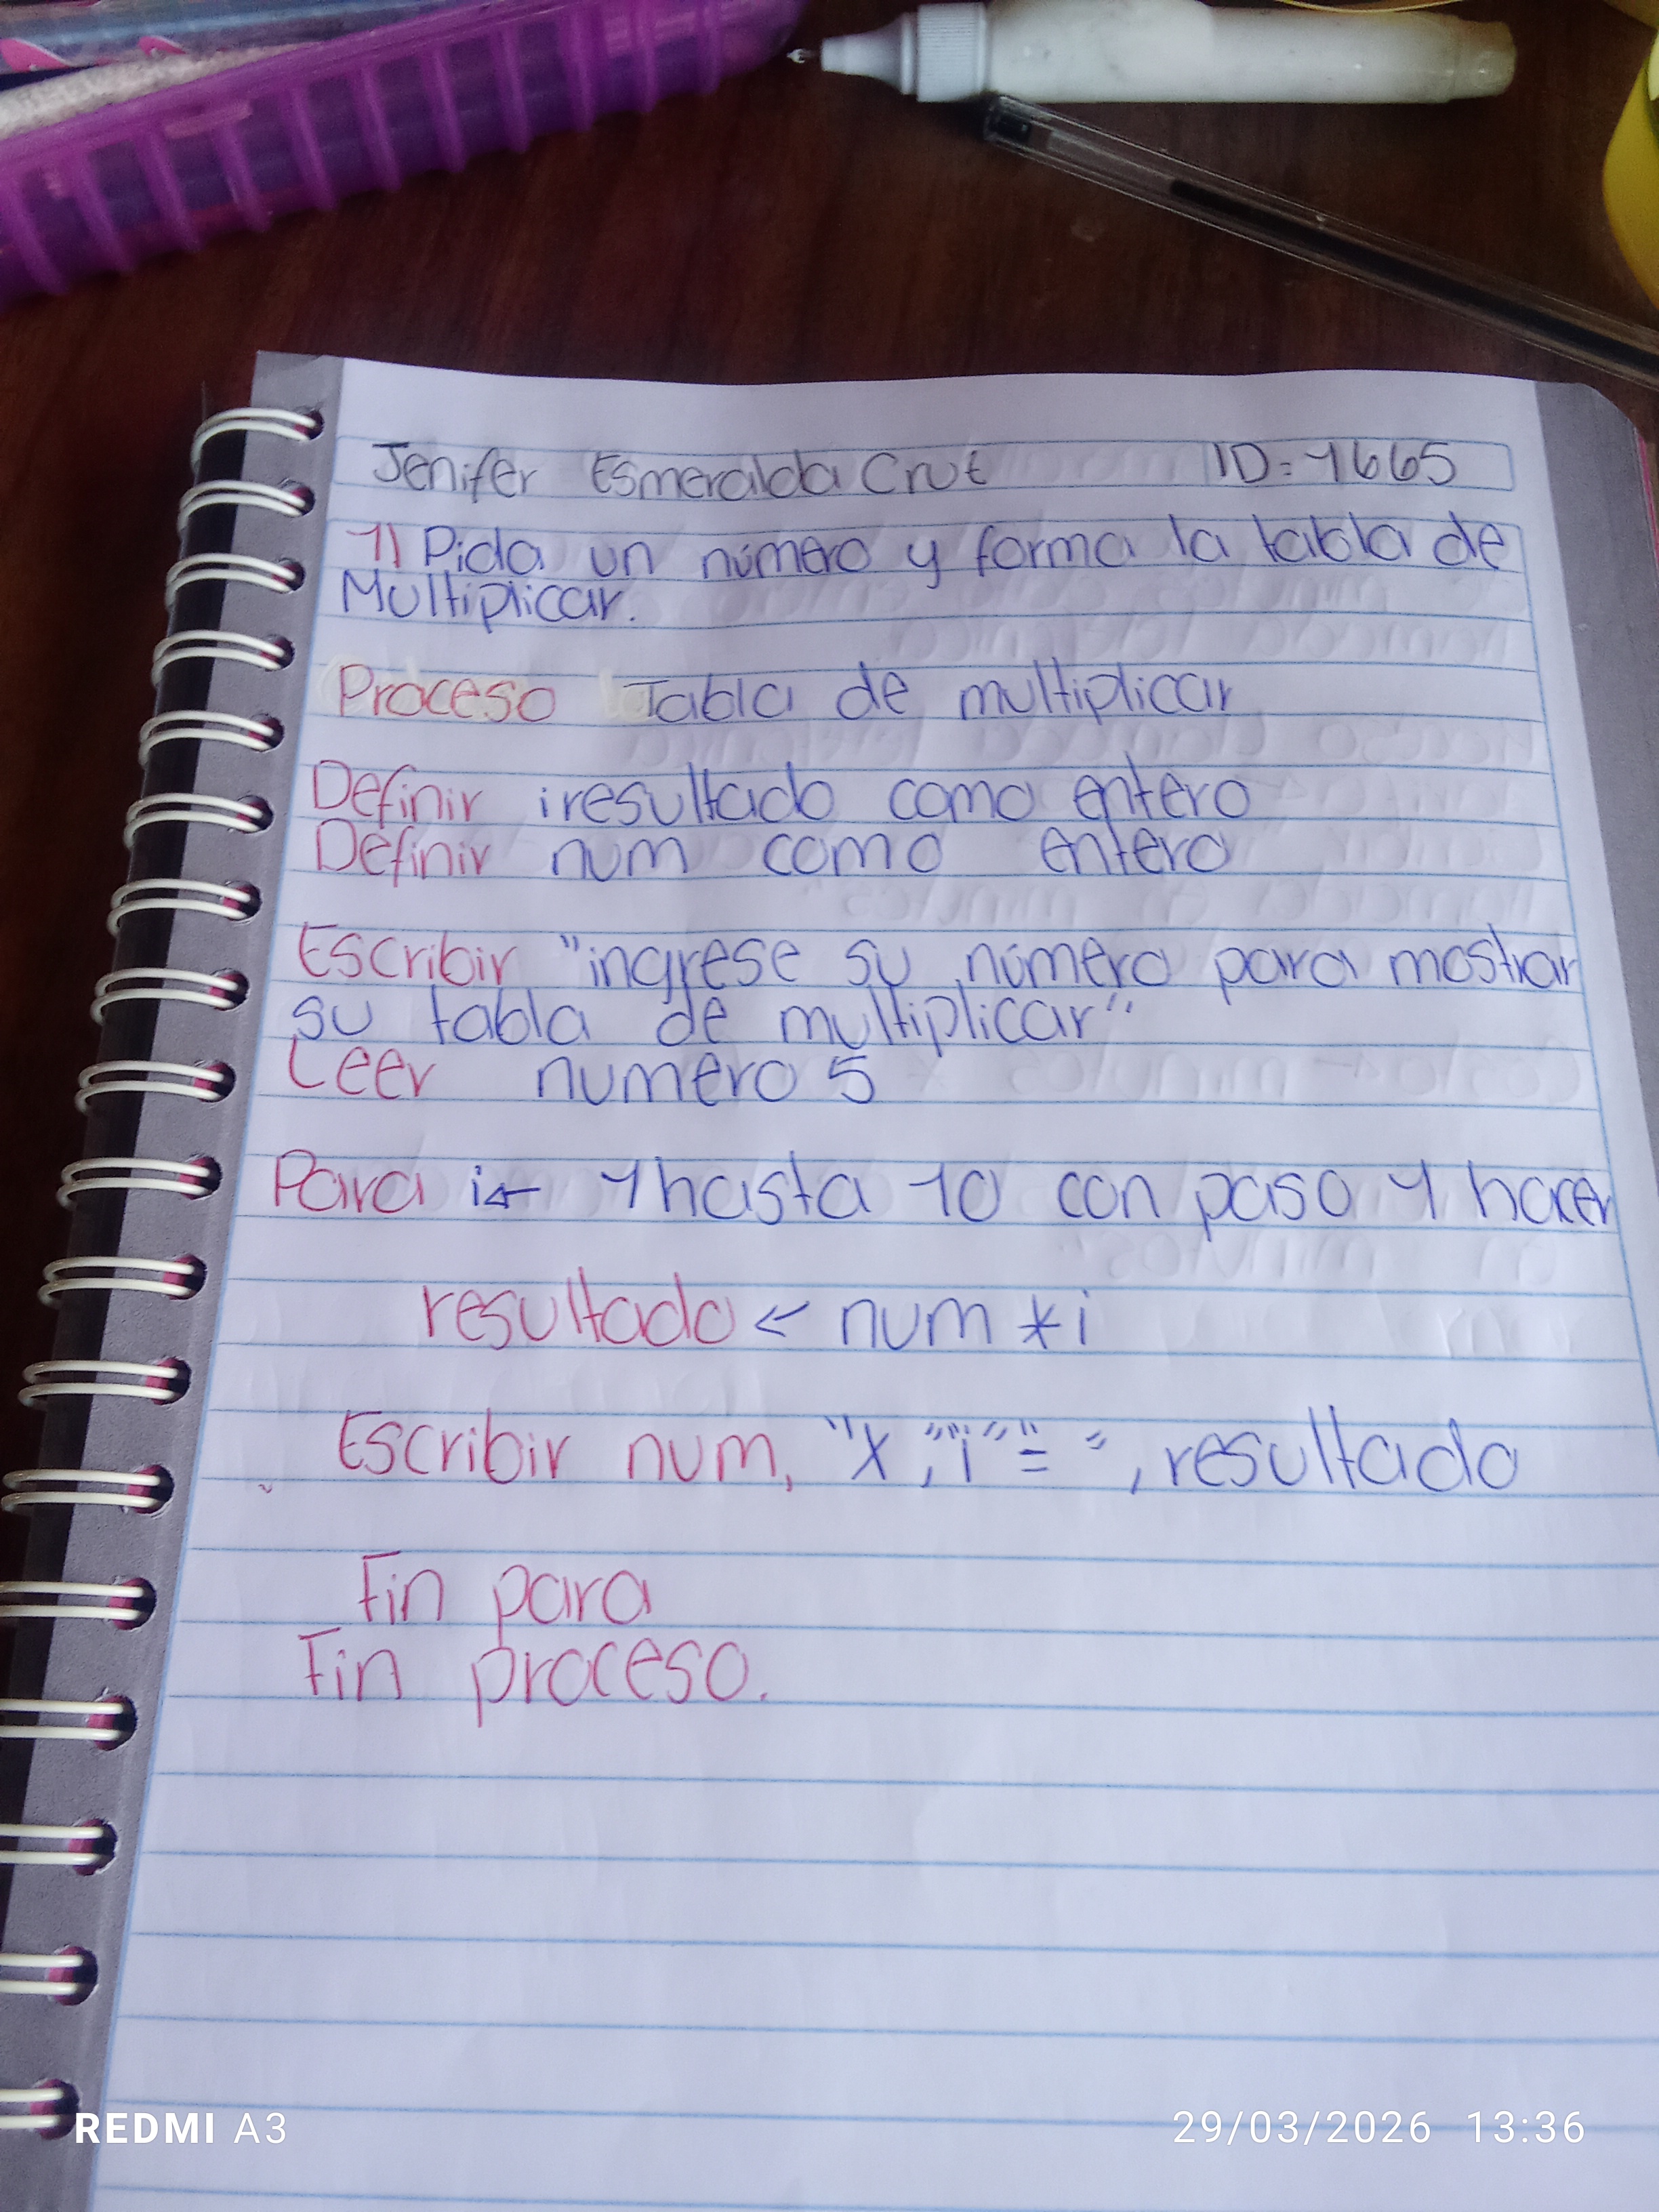 Jenifer Esmeralda Crut ID: 1665
1) Pida un número y forma la tabla de
Multiplicar.
Proceso Tabla de multiplicar
Definir i resultado como entero
Definir num como entero
Escribir "ingrese su número para mostrar
su tabla de multiplicar"
Leer numero 5
Para i← 1 hasta 10 con paso 1 hacer
resultado ← num * i
Escribir num, "x ", "i" "= ", resultado
Fin para
Fin proceso.
REDMI A3 29/03/2026 13:36